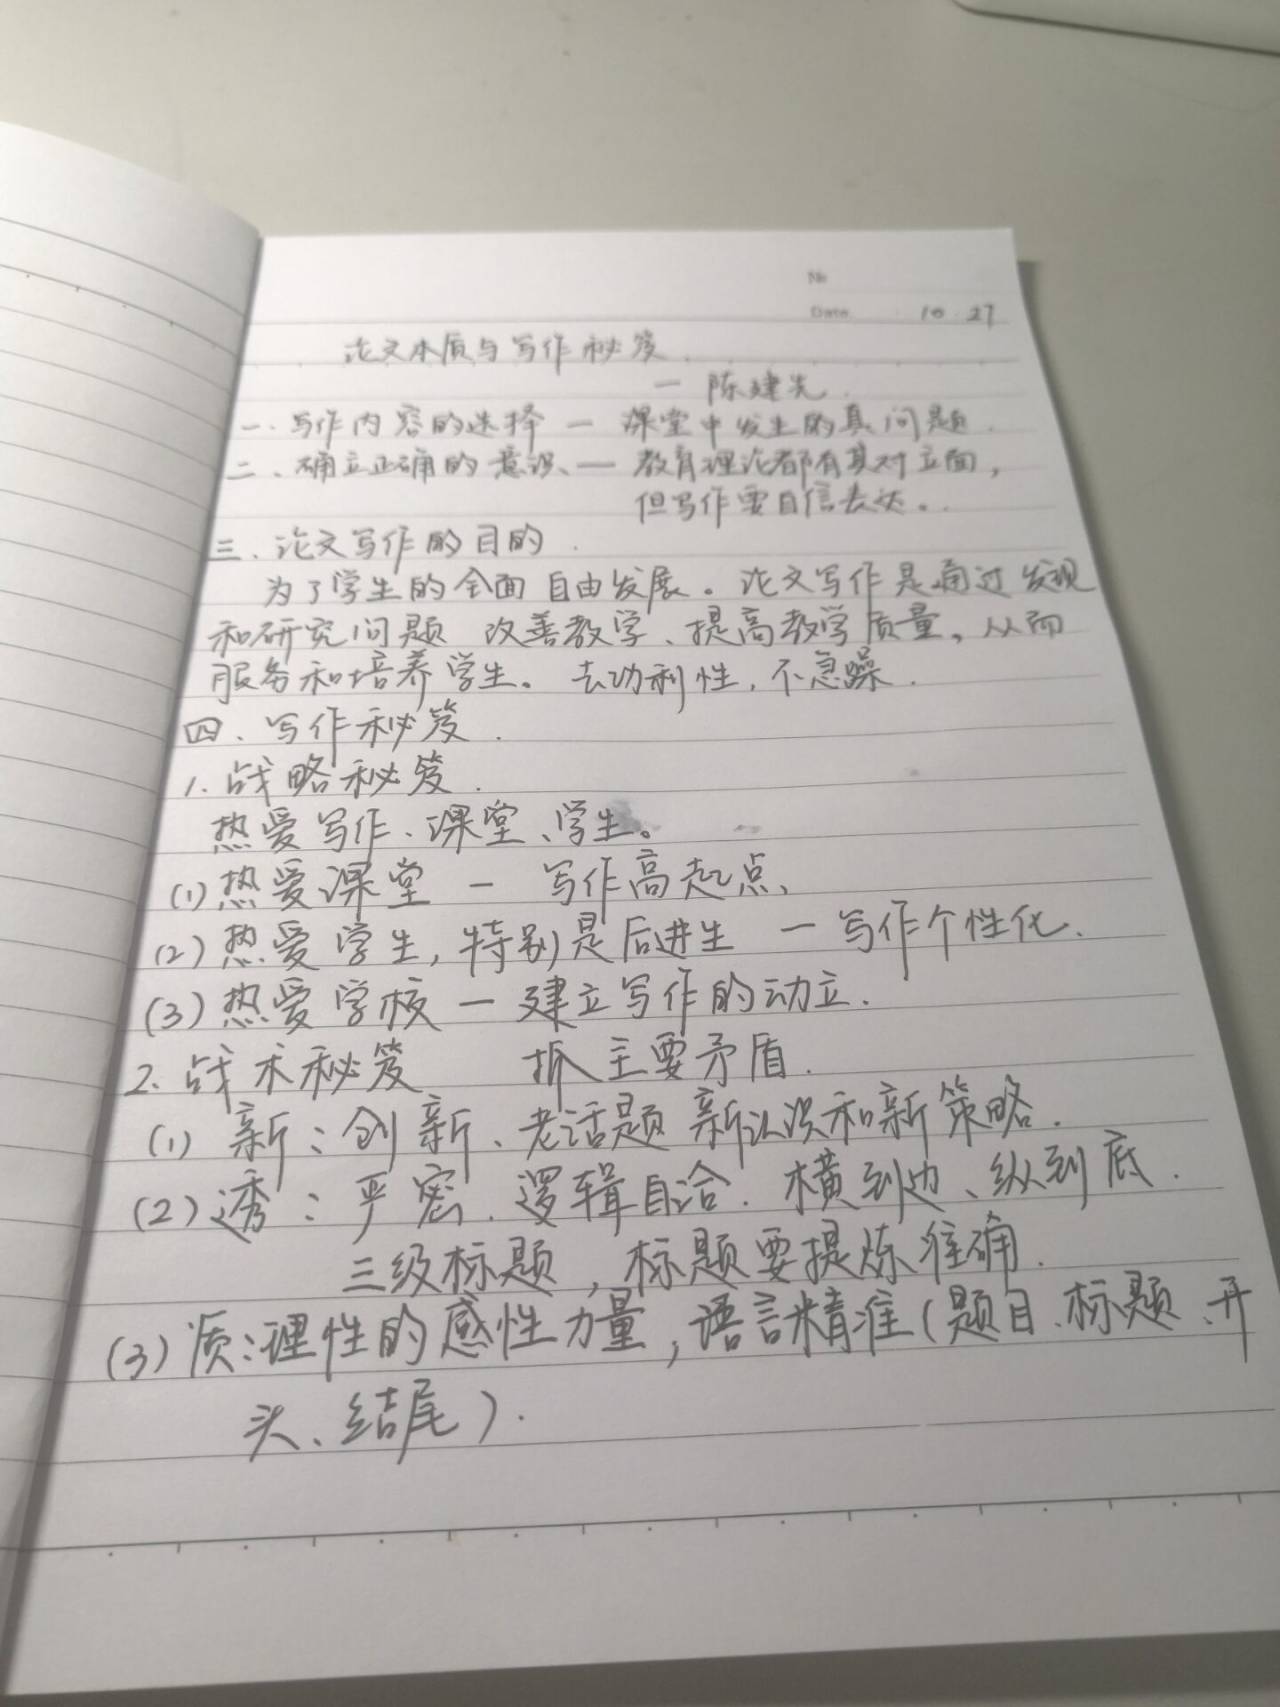 No
Date 10.27
论文本质与写作秘笈.
— 陈建先.
一.写作内容的选择 — 课堂中发生的真问题.
二、确立正确的意识、— 教育理论都有其对立面,
但写作要自信表达。.
三.论文写作的目的.
为了学生的全面自由发展。论文写作是通过发现
和研究问题 改善教学、提高教学质量,从而
服务和培养学生。去功利性,不急躁.
四、写作秘笈.
1.战略秘笈.
热爱写作、课堂、学生。
(1)热爱课堂 — 写作高起点、
(2)热爱学生,特别是后进生 — 写作个性化.
(3)热爱学校 — 建立写作的动立.
2.战术秘笈 抓主要矛盾.
(1) 新:创新、老话题 新认识和新策略.
(2)透:严密.逻辑自洽.横到边、纵到底.
三级标题,标题要提炼准确.
(3)质:理性的感性力量,语言精准(题目.标题、开
头、结尾).